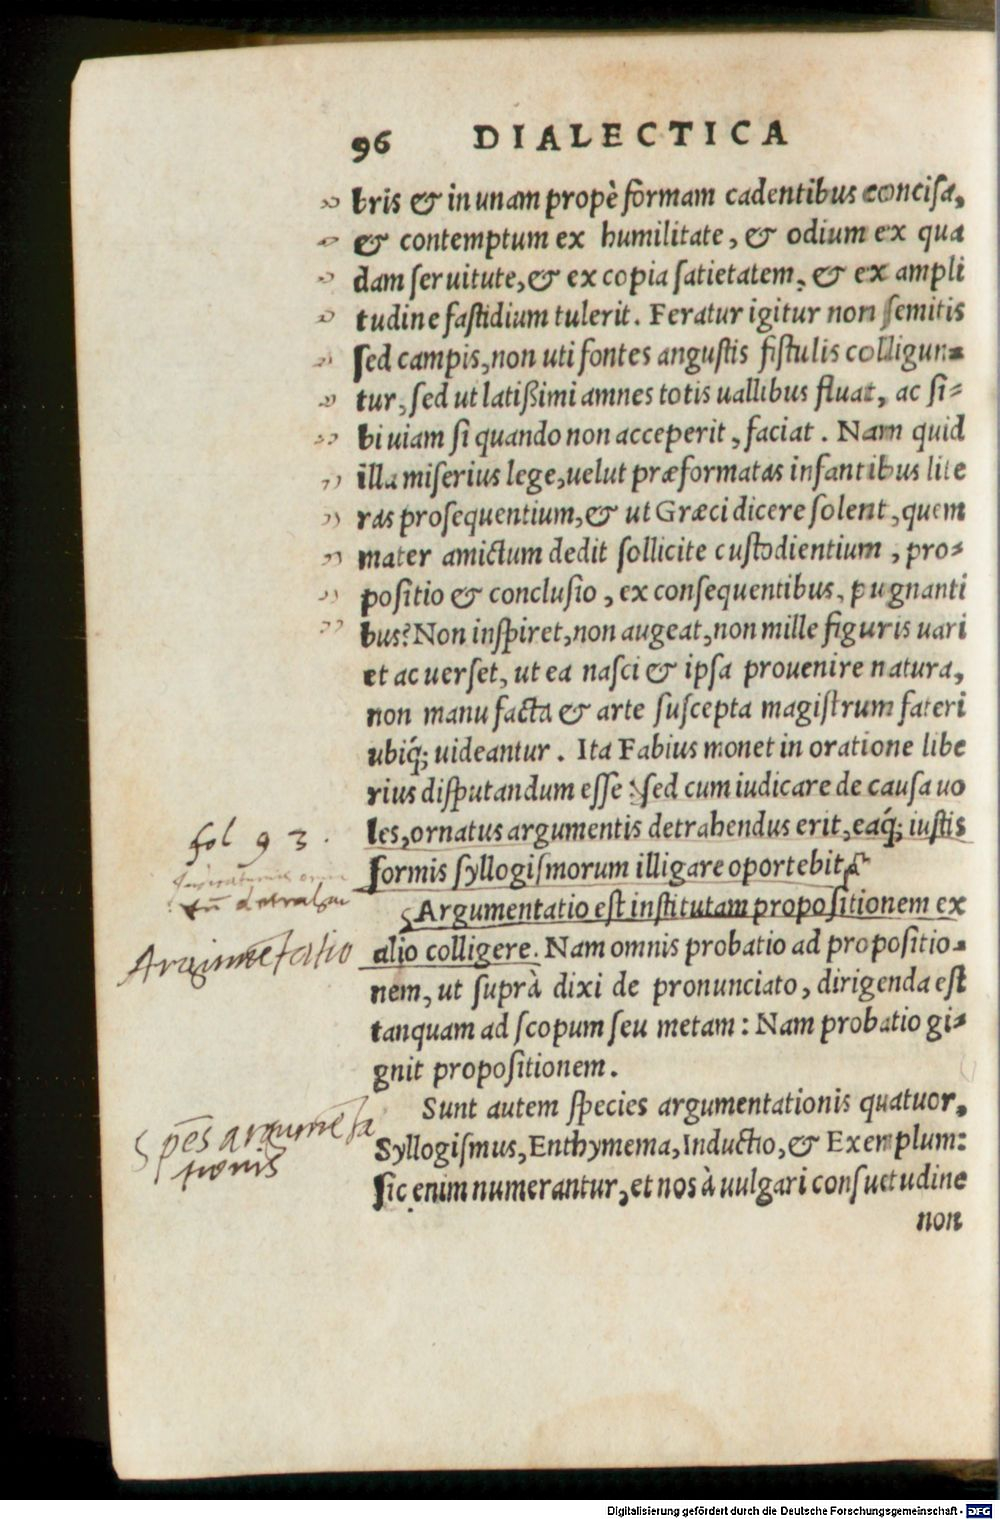 96 DIALECTICA
bris & in unam propè formam cadentibus concisa,
& contemptum ex humilitate, & odium ex qua
dam ſeruitute, & ex copia ſatietatem, & ex ampli
tudine faſtidium tulerit. Feratur igitur non ſemitis
ſed campis, non uti fontes anguſtis fiſtulis colligun-
tur, ſed ut latißimi amnes totis uallibus fluat, ac ſi-
bi uiam ſi quando non acceperit, faciat. Nam quid
illa miſerius lege, uelut præformatas infantibus lite
ras proſequentium, & ut Græci dicere ſolent, quem
mater amictum dedit ſollicite cuſtodientium, pro-
poſitio & concluſio, ex conſequentibus, pugnanti
bus? Non inſpiret, non augeat, non mille figuris uari
et ac uerſet, ut ea naſci & ipſa prouenire natura,
non manu facta & arte ſuſcepta magiſtrum fateri
ubiq́; uideantur. Ita Fabius monet in oratione libe
rius diſputandum eſſe: ſed cum iudicare de cauſa uo
les, ornatus argumentis detrahendus erit, eaq́; iuſtis
formis ſyllogiſmorum illigare oportebit.
Argumentatio eſt inſtitutam propoſitionem ex
alio colligere. Nam omnis probatio ad propoſitio-
nem, ut ſuprà dixi de pronunciato, dirigenda eſt
tanquam ad ſcopum ſeu metam: Nam probatio gi-
gnit propoſitionem.
Sunt autem ſpecies argumentationis quatuor,
Syllogiſmus, Enthymema, Inductio, & Exemplum:
ſic enim numerantur, et nos à uulgari conſuetudine
non
fol 93.
Argumētatio
Spēs argumēta
tionis
Digitalisierung gefördert durch die Deutsche Forschungsgemeinschaft - DFG